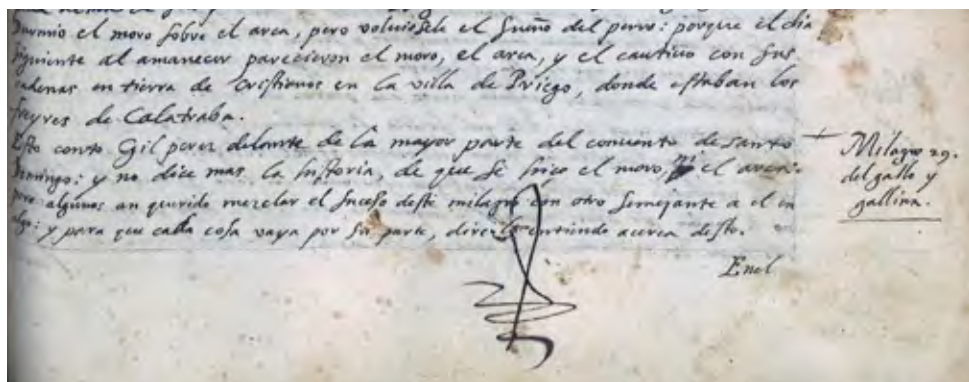 Durmio el moro sobre el arca, pero voluiosele el sueño del perro: porque el dia
siguiente al amanecer parecieron el moro, el arca, y el cautiuo con sus
cadenas en tierra de cristianos en la villa de Priego, donde estaban los
freyres de Calatraba.
Esto conto Gil perez delante de la mayor parte del conuento de santo
Domingo: y no dice mas la historia, de que se hico el moro, ni el arca:
pero algunos an querido mezclar el suceso deste milagro con otro semejante a el en
algo: y para que cada cosa vaya por su parte, dire lo que entiendo acerca desto.
Enel
+ Milagro 29.
del gallo y
gallina.